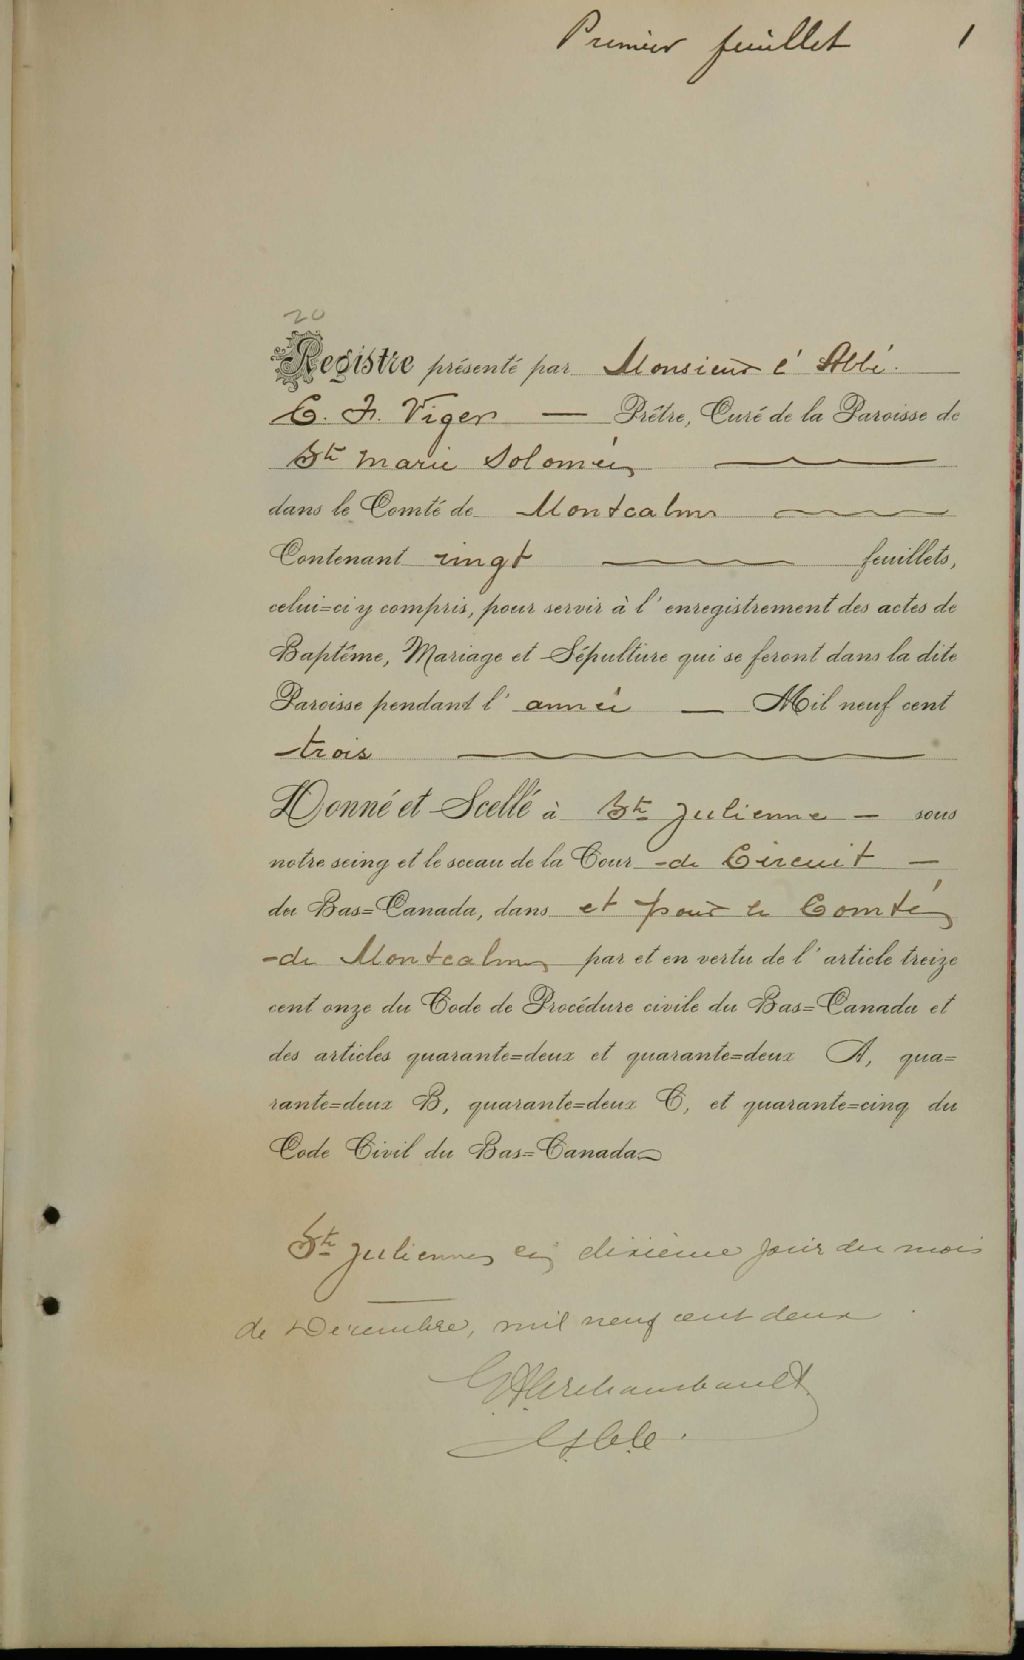 Premier feuillet 1
20
Registre présenté par Monsieur l'Abbé.
C. F. Viger — Prêtre, Curé de la Paroisse de
Ste Marie Solomée
dans le Comté de Montcalm
Contenant vingt feuillets,
celui=ci y compris, pour servir à l'enregistrement des actes de
Baptême, Mariage et Sépulture qui se feront dans la dite
Paroisse pendant l'année — Mil neuf cent
trois
Donné et Scellé à Ste Julienne — sous
notre seing et le sceau de la Cour de Circuit —
du Bas=Canada, dans et pour le Comté
de Montcalm par et en vertu de l'article treize
cent onze du Code de Procédure civile du Bas=Canada et
des articles quarante=deux et quarante=deux A, qua=
rante=deux B, quarante=deux C, et quarante=cinq du
Code Civil du Bas=Canada
Ste Julienne ce dixième jour du mois
de Décembre, mil neuf cent deux
Archambault